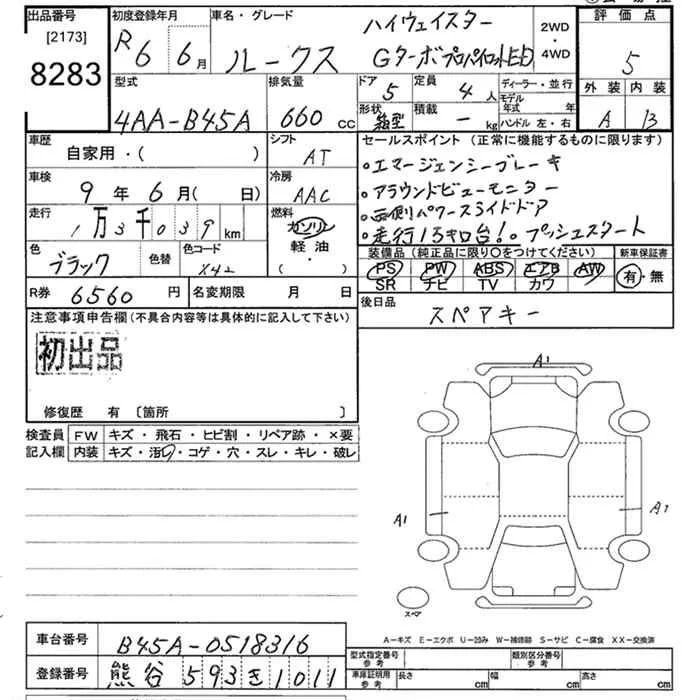 出品番号
[2173]
8283
初度登録年月
R6 6月
車名・グレード
ルークス
ハイウェイスター
Gターボプロパイロットエディ
2WD
・
4WD
評価点
5
外装 内装
A B
型式
4AA-B45A
排気量
660 cc
ドア
5
定員
4人
ディーラー・並行
モデル年式 年
ハンドル 左・右
形状
箱型
積載
- kg
車歴
自家用・( )
シフト
AT
セールスポイント(正常に機能するものに限ります)
。エマージェンシーブレーキ
。アラウンドビューモニター
。両側パワースライドドア
。走行1.5キロ台!。プッシュスタート
車検
9年 6月( 日)
冷房
AAC
走行
1万3千039km
燃料
ガソリン
軽油
・( )
色
ブラック
色替
色コード
X42
装備品(純正品に限り○をつけてください)
PS PW ABS エアB AW
SR ナビ TV カワ
新車保証書
有・無
R券 6560円
名変期限 月 日
後日品
スペアキー
注意事項申告欄(不具合内容等は具体的に記入して下さい)
初出品
修復歴 有 〔箇所 〕
検査員
記入欄
FW キズ・飛石・ヒビ割・リペア跡・×要
内装 キズ・汚レ・コゲ・穴・スレ・キレ・破レ
A1
A1
A1
スペア
A-キズ E-エクボ U-凹み W-補修跡 S-サビ C-腐食 XX-交換済
車台番号 B45A-0518316
登録番号 熊谷 593 き 1011
型式指定番号
参考
類別区分番号
参考
車庫証明用
参考
長さ cm 幅 cm 高さ cm